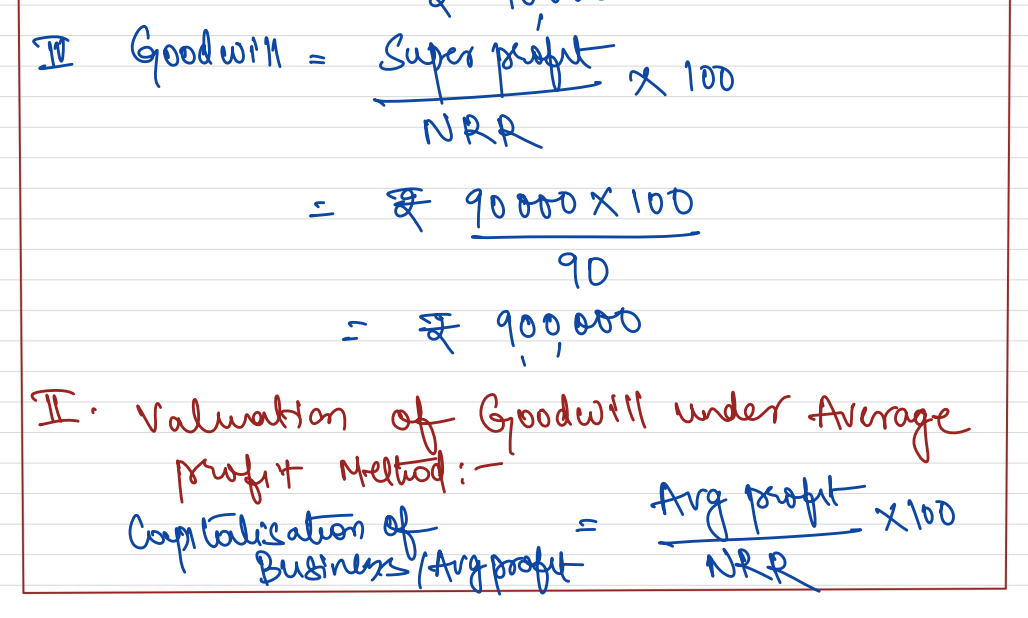 IV Goodwill = Super profit / NRR × 100
= ₹ 90000 × 100 / 90
= ₹ 900,000
II. Valuation of Goodwill under Average
profit Method :-
Capitalisation of Business/Avg profit = Avg profit / NRR × 100